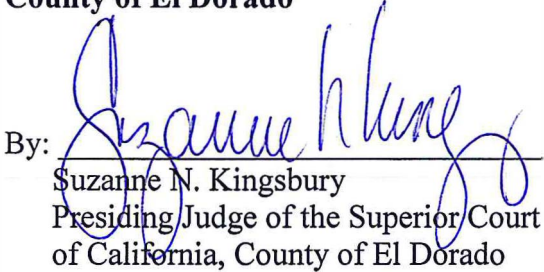 County of El Dorado
By: Suzanne N Kingsbury
Suzanne N. Kingsbury
Presiding Judge of the Superior Court
of California, County of El Dorado